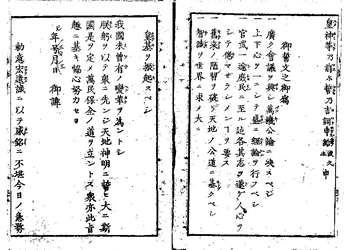 御誓文之御寫
廣ク會議ヲ興シ萬機公論ニ決スヘシ
上下心ヲ一ニシテ盛ニ經綸ヲ行フヘシ
官武一途庶民ニ至ル迄各其志ヲ遂ケ人心ヲ
シテ倦マサラシメンヿヲ要ス
舊來ノ陋習ヲ破リ天地ノ公道ニ基クヘシ
智識ヲ世界ニ求メ大ニ
皇基ヲ振起スヘシ
我國未曾有ノ變革ヲ爲ントシ
朕躬ヲ以テ衆ニ先ンシ天地神明ニ誓ヒ大ニ斯
國是ヲ定メ萬民保全ノ道ヲ立ントス衆亦此旨
趣ニ基キ協心努力セヨ
年號月日 御諱
勅意宏遠誠ニ以テ感銘ニ不堪今日ノ急務